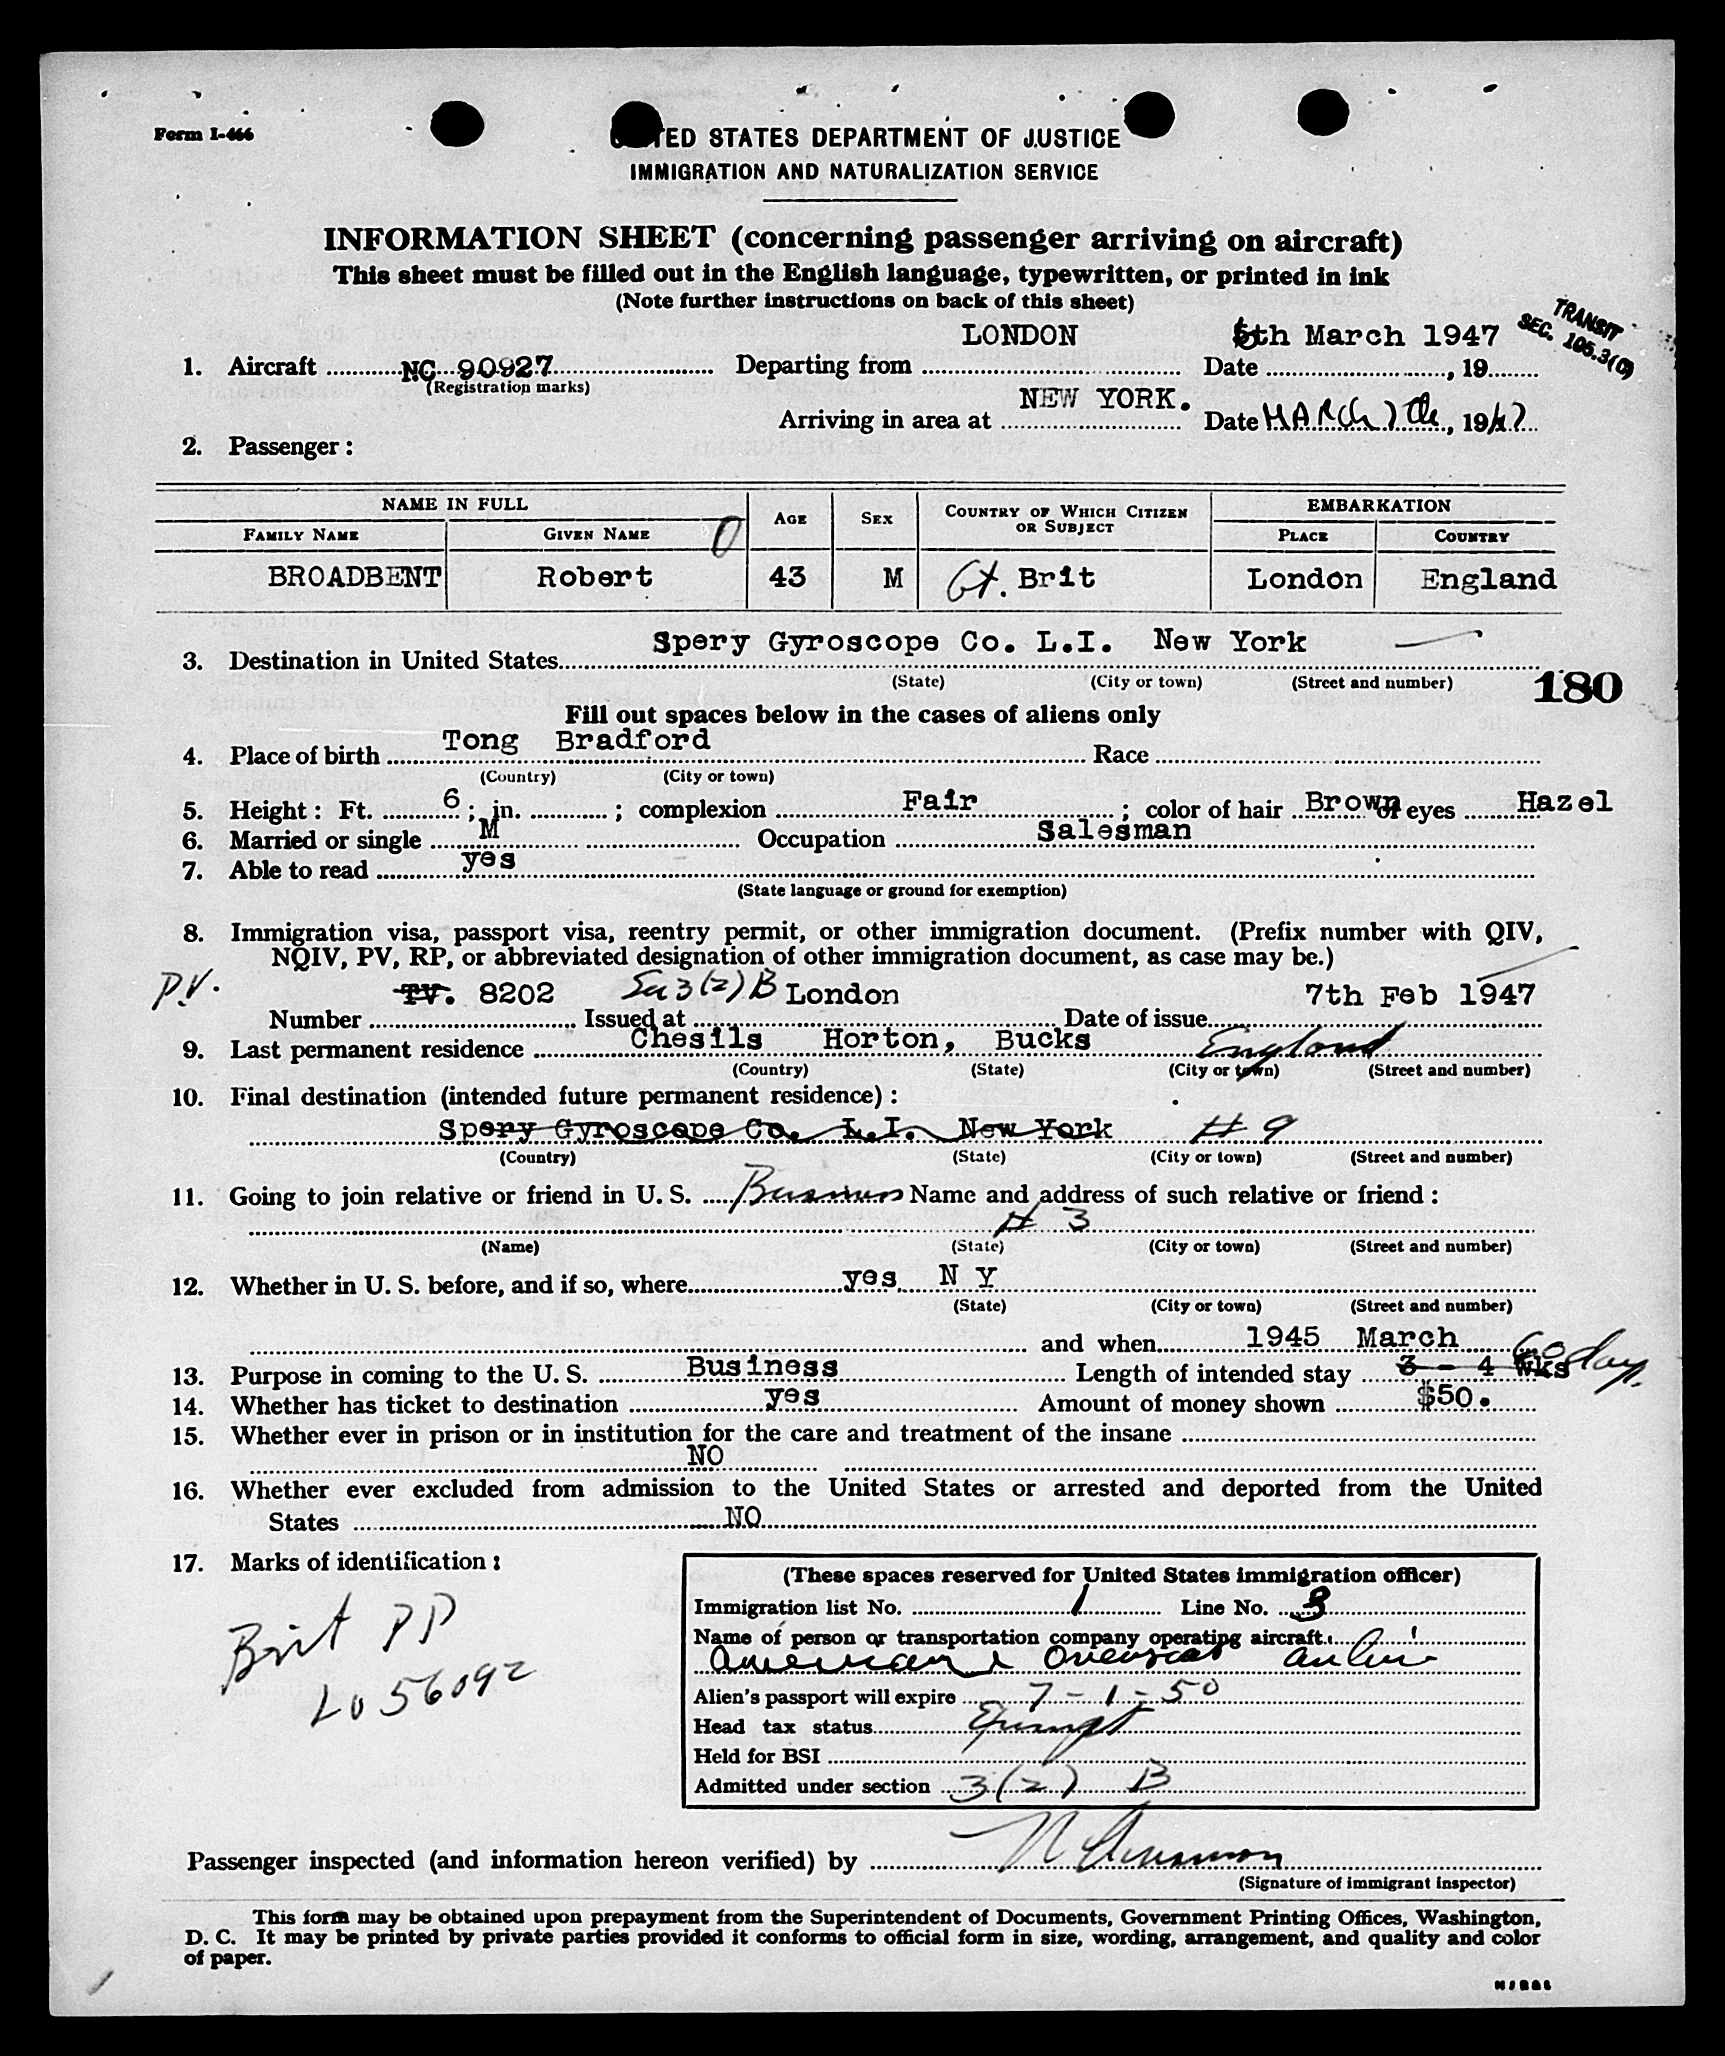 Form I-466
UNITED STATES DEPARTMENT OF JUSTICE
IMMIGRATION AND NATURALIZATION SERVICE
INFORMATION SHEET (concerning passenger arriving on aircraft)
This sheet must be filled out in the English language, typewritten, or printed in ink
(Note further instructions on back of this sheet)
TRANSIT
SEC. 105.3(C)
LONDON 6th March 1947
1. Aircraft NC 90927 Departing from Date , 19
(Registration marks)
NEW YORK.
Arriving in area at Date MARCH 7th, 1947
2. Passenger:
NAME IN FULL AGE SEX COUNTRY OF WHICH CITIZEN OR SUBJECT EMBARKATION
FAMILY NAME GIVEN NAME PLACE COUNTRY
0
BROADBENT Robert 43 M Gt. Brit London England
Spery Gyroscope Co. L.I. New York
3. Destination in United States
(State) (City or town) (Street and number)
180
Fill out spaces below in the cases of aliens only
4. Place of birth Tong Bradford Race
(Country) (City or town)
5. Height: Ft. 6; in. ; complexion Fair; color of hair Brown of eyes Hazel
6. Married or single M Occupation Salesman
7. Able to read yes
(State language or ground for exemption)
8. Immigration visa, passport visa, reentry permit, or other immigration document. (Prefix number with QIV,
NQIV, PV, RP, or abbreviated designation of other immigration document, as case may be.)
P.V. TV. 8202 Sec 3(2)B London 7th Feb 1947
Number Issued at Date of issue
9. Last permanent residence Chesils Horton, Bucks England
(Country) (State) (City or town) (Street and number)
10. Final destination (intended future permanent residence):
Spery Gyroscope Co. L.I. New York # 9
(Country) (State) (City or town) (Street and number)
11. Going to join relative or friend in U. S. Business Name and address of such relative or friend:
# 3
(Name) (State) (City or town) (Street and number)
12. Whether in U. S. before, and if so, where yes N Y
(State) (City or town) (Street and number)
and when 1945 March
13. Purpose in coming to the U. S. Business Length of intended stay 3 - 4 wks 60 days.
14. Whether has ticket to destination yes Amount of money shown $50.
15. Whether ever in prison or in institution for the care and treatment of the insane
NO
16. Whether ever excluded from admission to the United States or arrested and deported from the United
States NO
17. Marks of identification:
Brit PP
L0 56092
(These spaces reserved for United States immigration officer)
Immigration list No. 1 Line No. 3
Name of person or transportation company operating aircraft
American Overseas Airline
Alien's passport will expire 7-1-50
Head tax status Exempt
Held for BSI
Admitted under section 3(2) B
Passenger inspected (and information hereon verified) by
(Signature of immigrant inspector)
This form may be obtained upon prepayment from the Superintendent of Documents, Government Printing Offices, Washington,
D. C. It may be printed by private parties provided it conforms to official form in size, wording, arrangement, and quality and color
of paper.